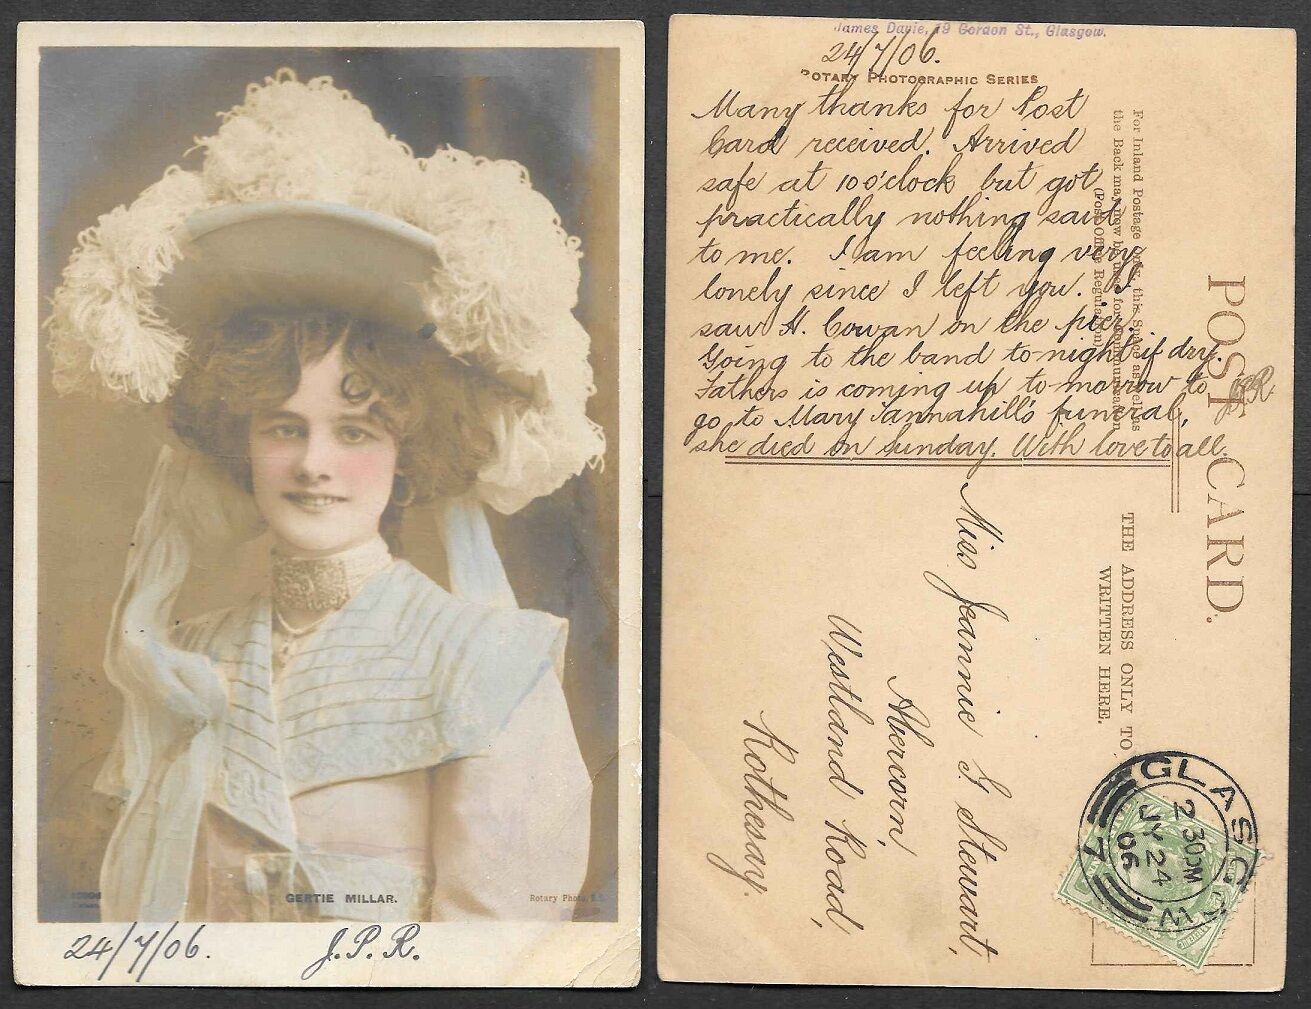 GERTIE MILLAR.
Rotary Photo, E.C.
24/7/06. J.P.R.
James Davie, 19 Gordon St., Glasgow.
24/7/06.
ROTARY PHOTOGRAPHIC SERIES
Many thanks for Post
Card received. Arrived
safe at 10 o'clock but got
practically nothing said
to me. I am feeling very
lonely since I left you. I
saw H. Cowan on the pier.
Going to the band to-night if dry.
Fathers is coming up to-morrow to
go to Mary Tannahill's funeral,
she died on Sunday. With love to all.
JPR
For Inland Postage only, this Space as well as
the Back may now be used for Communication
(Post Office Regulation)
POST CARD.
THE ADDRESS ONLY TO
WRITTEN HERE.
Miss Jeannie G. Stewart,
Abercorn,
Westland Road,
Rothesay.
GLASGOW
2 30PM
JY 24
06
7